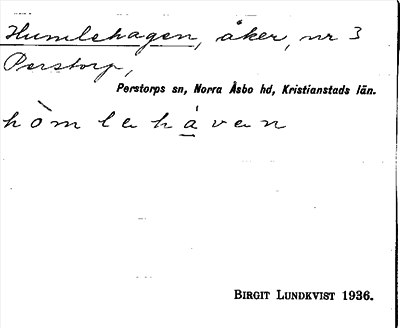 Humlehagen, åker, nr 3
Perstorp,
Perstorps sn, Norra Åsbo hd, Kristianstads län.
hòmlehá̱van
BIRGIT LUNDKVIST 1936.